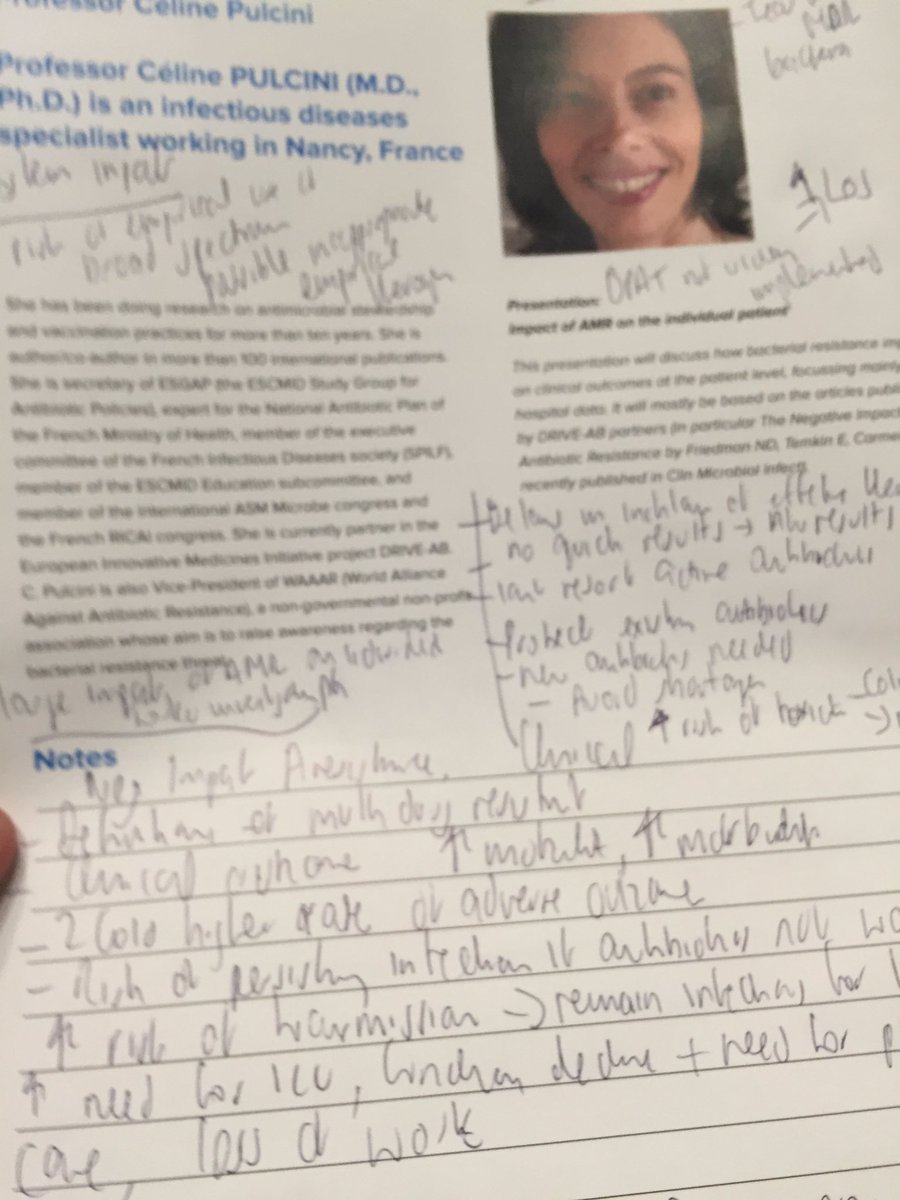 Professor Céline Pulcini
Professor Céline PULCINI (M.D.,
Ph.D.) is an infectious diseases
specialist working in Nancy, France
risk of empirical use of
broad spectrum
possible inappropriate
empirical
therapy
She has been doing research on antimicrobial stewardship
and vaccination practices for more than ten years. She is
author/co-author in more than 100 international publications.
She is secretary of ESGAP (the ESCMID Study Group for
Antibiotic Policies), expert for the National Antibiotic Plan of
the French Ministry of Health, member of the executive
committee of the French Infectious Diseases society (SPILF),
member of the ESCMID Education subcommittee, and
member of the international ASM Microbe congress and
the French RICAI congress. She is currently partner in the
European Innovative Medicines Initiative project DRIVE-AB.
C. Pulcini is also Vice-President of WAAAR (World Alliance
Against Antibiotic Resistance), a non-governmental non-profit
association whose aim is to raise awareness regarding the
bacterial resistance threat.
large impact of AMR on individual
MDR
bacteria
↑ LOS
OPAT not widely
implemented
Presentation:
Impact of AMR on the individual patient
This presentation will discuss how bacterial resistance
on clinical outcomes at the patient level, focussing mainly
hospital data. It will mostly be based on the articles
by DRIVE-AB partners (in particular The Negative Impact
Antibiotic Resistance by Friedman ND, Temkin E, Carmeli
recently published in Clin Microbiol Infect).
Delay in initiation of effective
no quick results → results
last resort active antibiotics
- Protect existing antibiotics
- new antibiotics needed
- Avoid shortage
Clinical ↑ risk of
Notes
Impact
- Definitions of multi drug resistant
- Clinical outcome ↑ mortality, ↑ morbidity
- 2 fold higher rate of adverse outcome
- Risk of persisting infection if antibiotics not
↑ risk of transmission → remain infectious for
↑ need for ICU, function decline + need for
care, loss of work